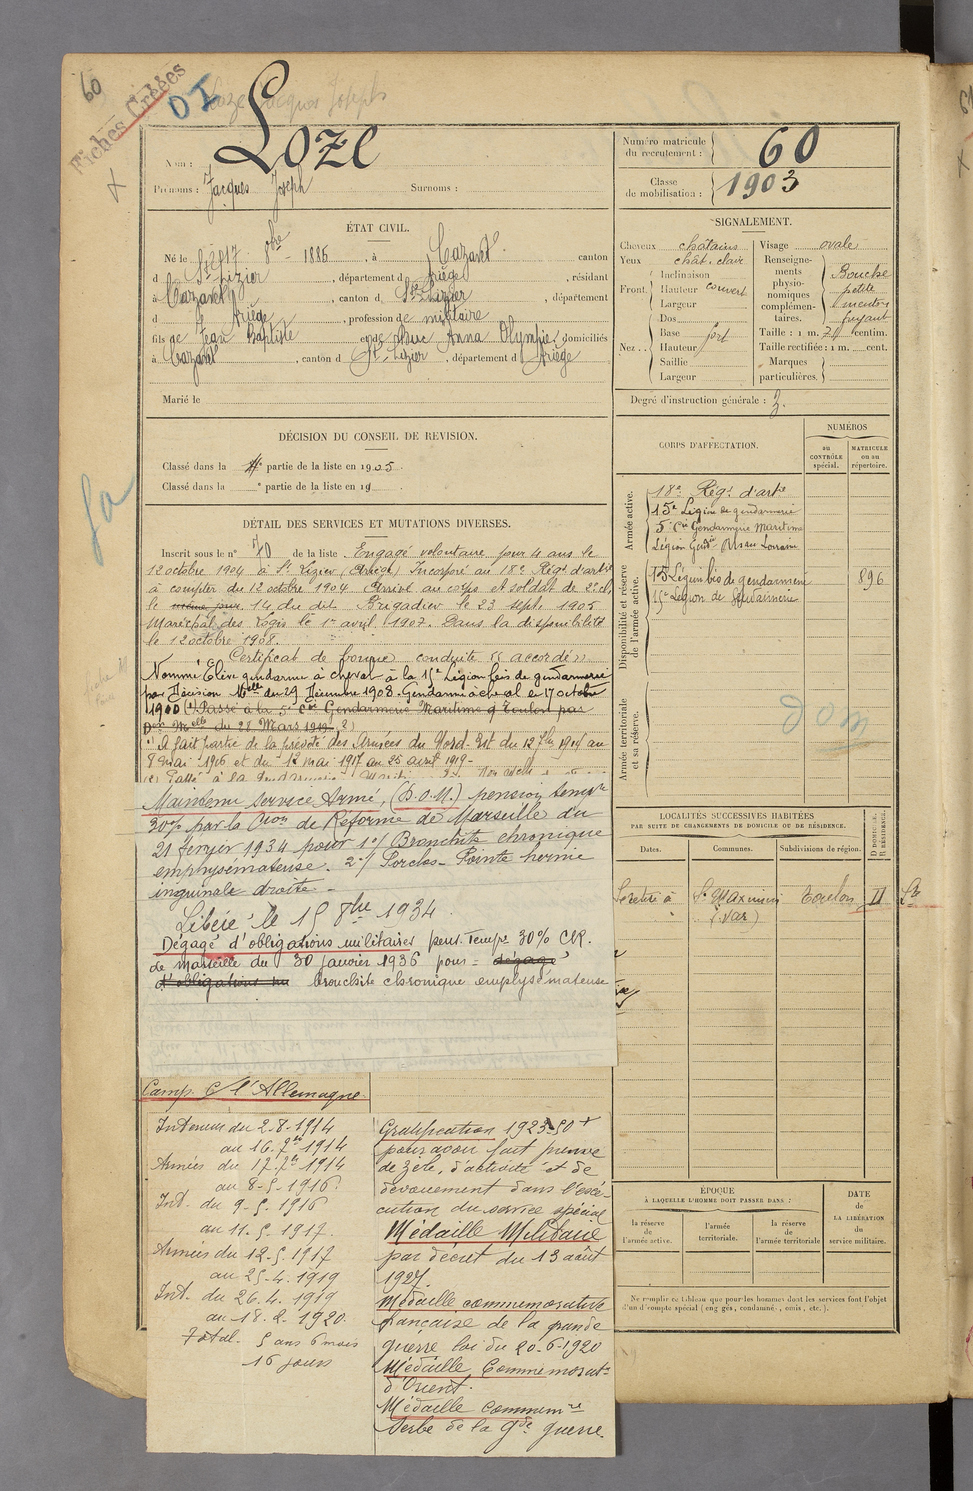 60
Fiches Créées
DI
Loze Jacques Joseph
Nom : Loze
Prénoms : Jacques Joseph Surnoms :
Numéro matricule du recrutement : 60
Classe de mobilisation : 1903
ÉTAT CIVIL.
Né le 8bre 1885, à Cazavet canton
d St Lizier, département d Ariège, résidant
à Cazavet, canton d St Lizier, département
d Ariège, profession de militaire
fils de Jean Baptiste et de Buc Anna Olympie, domiciliés
à Cazavet, canton d St Lizier, département d Ariège
Marié le
SIGNALEMENT.
Cheveux châtains
Yeux chât. clair
Front. Inclinaison
Hauteur couvert
Largeur
Nez .. Dos
Base fort
Hauteur
Saillie
Largeur
Visage ovale
Renseignements physionomiques complémentaires. Bouche petite menton fuyant
Taille : 1 m. 71 centim.
Taille rectifiée : 1 m. cent.
Marques particulières.
Degré d'instruction générale : 3.
DÉCISION DU CONSEIL DE REVISION.
Classé dans la partie de la liste en 1905.
Classé dans la ° partie de la liste en 19 .
DÉTAIL DES SERVICES ET MUTATIONS DIVERSES.
Inscrit sous le n° 70 de la liste. Engagé volontaire pour 4 ans le
12 octobre 1904 à St Lizier (Ariège) Incorporé au 18e Régt d'artie
à compter du 12 octobre 1904 Arrivé au corps et soldat de 2e cl.
le même jour 14 du dit Brigadier le 23 sept. 1905
Maréchal des Logis le 1er avril 1907. Dans la disponibilité
le 12 octobre 1908.
Certificat de bonne conduite "accordé"
Nommé Elève gendarme à cheval à la 15e Légion bis de gendarmerie
par Décision Melle du 29 Décembre 1908. Gendarme à cheval le 17 octobre
1910 (1) Passé à la 5e Cie Gendarmerie Maritime à Toulon par
Don Melle du 28 Mars 1919. 2)
1) A fait partie de la prévôté des Armées du Nord-Est du 17 7bre 1914 au
8 mai 1916 et du 12 mai 1917 au 25 avril 1919-
Maintenu service Armé, (D.O.M.) pension tempre
30% par la Cion de Réforme de Marseille du
21 février 1934 pour 1°/ Bronchite chronique
emphysémateuse. 2°/ Porclas - Pointe hernie
inguinale droite -
Libéré le 15 8bre 1934.
Dégagé d'obligations militaires pens. Tempre 30% C.R.
de marseille du 30 janvier 1936 pour = dégagé
d'obligations bronchite chronique emphysémateuse
Camp. C/ l'Allemagne
Intérieur du 2-8-1914
au 16.7bre 1914
Armées du 17.7bre 1914
au 8-5-1916.
Int. du 9-5-1916
au 11.5.1917.
Armées du 12-5-1917
au 25-4-1919
Int. du 26.4.1919
au 18.2.1920
Total - 5 ans 6 mois
16 jours
Gratification 1923 50+
pour avoir fait preuve
de zèle, d'activité et de
dévouement dans l'exé-
cution du service spécial
Médaille Militaire
par décret du 13 août
1927.
Médaille commémorative
française de la grande
guerre loi du 20-6-1920
Médaille Commémorat.
d'Orient.
Médaille commemre
Serbe de la gde guerre.
CORPS D'AFFECTATION.
NUMÉROS
au CONTRÔLE spécial.
MATRICULE ou au répertoire.
Armée active.
18e Régt d'artie
15e Légion de gendarmerie
5e Cie Gendarmerie Maritime
Légion Gendrie Alsace Lorraine
Disponibilité et réserve de l'armée active.
15e Légion bis de gendarmerie 896
15e Légion de Gendarmerie
Armée territoriale et sa réserve.
Dom
LOCALITÉS SUCCESSIVES HABITÉES
PAR SUITE DE CHANGEMENTS DE DOMICILE OU DE RÉSIDENCE.
Dates. Communes. Subdivisions de région. D DOMICILE. R RÉSIDENCE.
Se retire à St Maximin Toulon D
(Var)
ÉPOQUE
À LAQUELLE L'HOMME DOIT PASSER DANS :
la réserve de l'armée active.
l'armée territoriale.
la réserve de l'armée territoriale
DATE de LA LIBÉRATION du service militaire.
Ne remplir ce tableau que pour les hommes dont les services font l'objet
d'un décompte spécial (engagés, condamnés, omis, etc.).